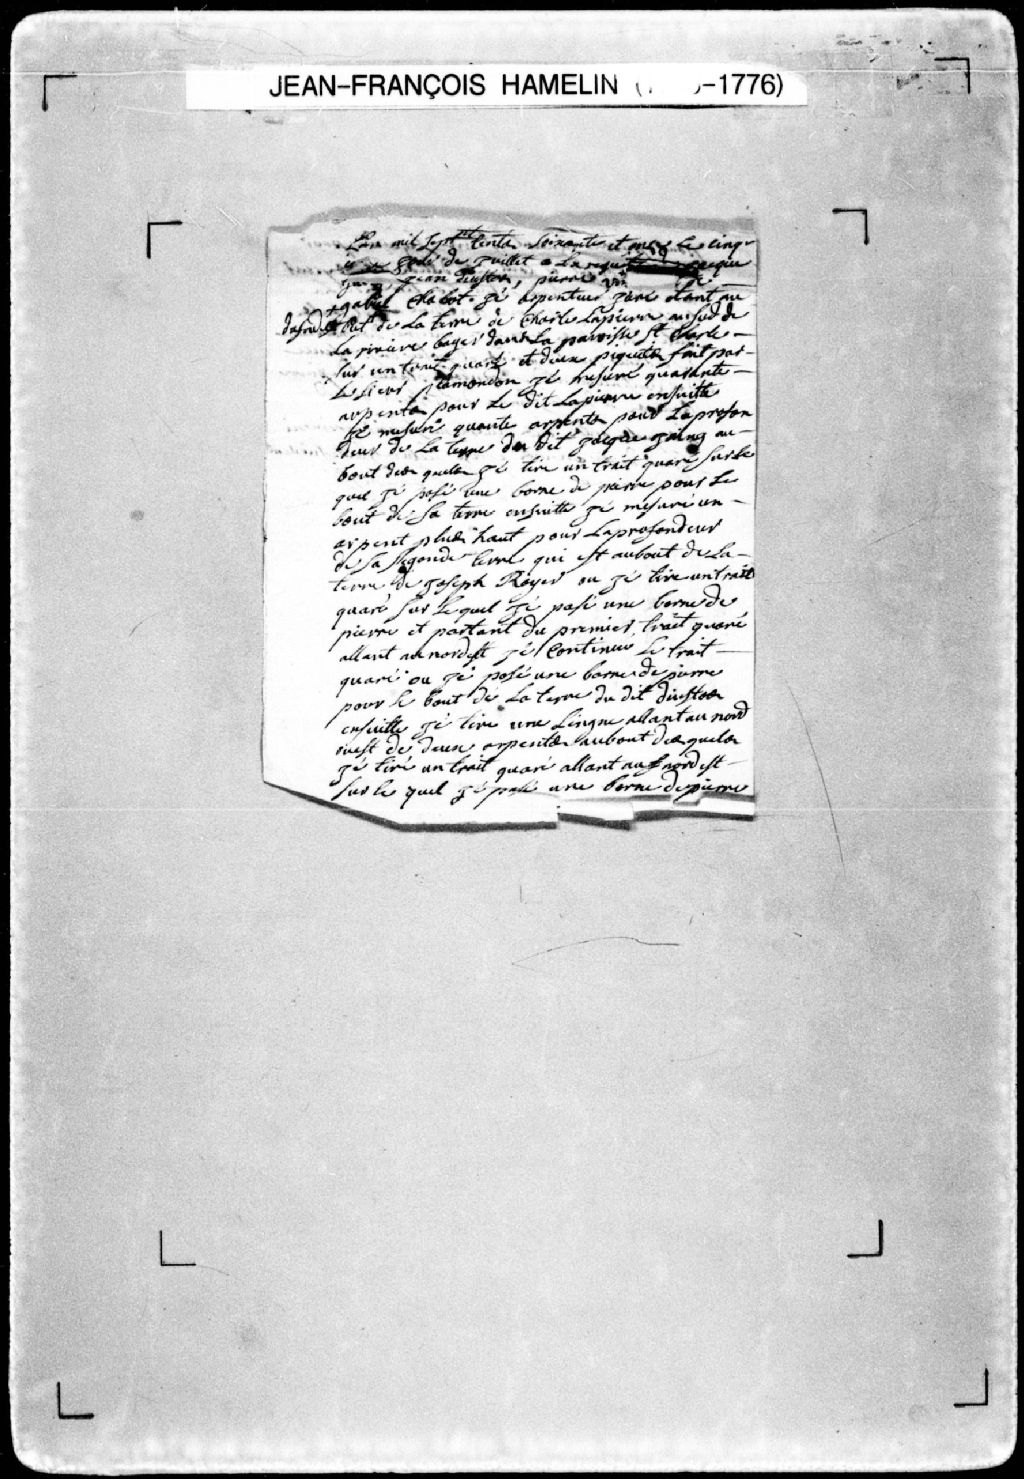 JEAN-FRANÇOIS HAMELIN ( -1776)
L'an mil sept cents soixante et le cinq
de Juillet a La requ
jean diuston, pierre
gabriel Chabot gé arpenteur juré étant au
du sud Est de La terre de Charle Lapierre au sud de
La riviere boyer dans La paroisse St Charle
sur un trait quaré et deux piquets fait par
Le sieur plamondon gé mesuré quarante
arpents pour Le dit Lapierre ensuitte
gé mesuré quarante arpents pour Laprofon
deur de La terre du dit jacque au
bout des quels gé tiré un trait quaré sur Le
quel gé posé une borne de pierre pour Le
bout de sa terre ensuitte gé mesuré un
arpent plus haut pour Laprofondeur
de sa segonde terre qui est au bout de La
terre de joseph Royer ou gé tiré un trait
quaré sur Lequel gé posé une borne de
pierre et partant du premier trait quaré
allant au nordest gé Continué Le trait
quaré ou gé posé une borne de pierre
pour le bout de La terre du dit diuston
ensuitte gé tiré une Lingne allant au nord
ouest de deux arpents au bout des quels
gé tiré un trait quaré allant au nord est
sur le quel gé posé une borne de pierre